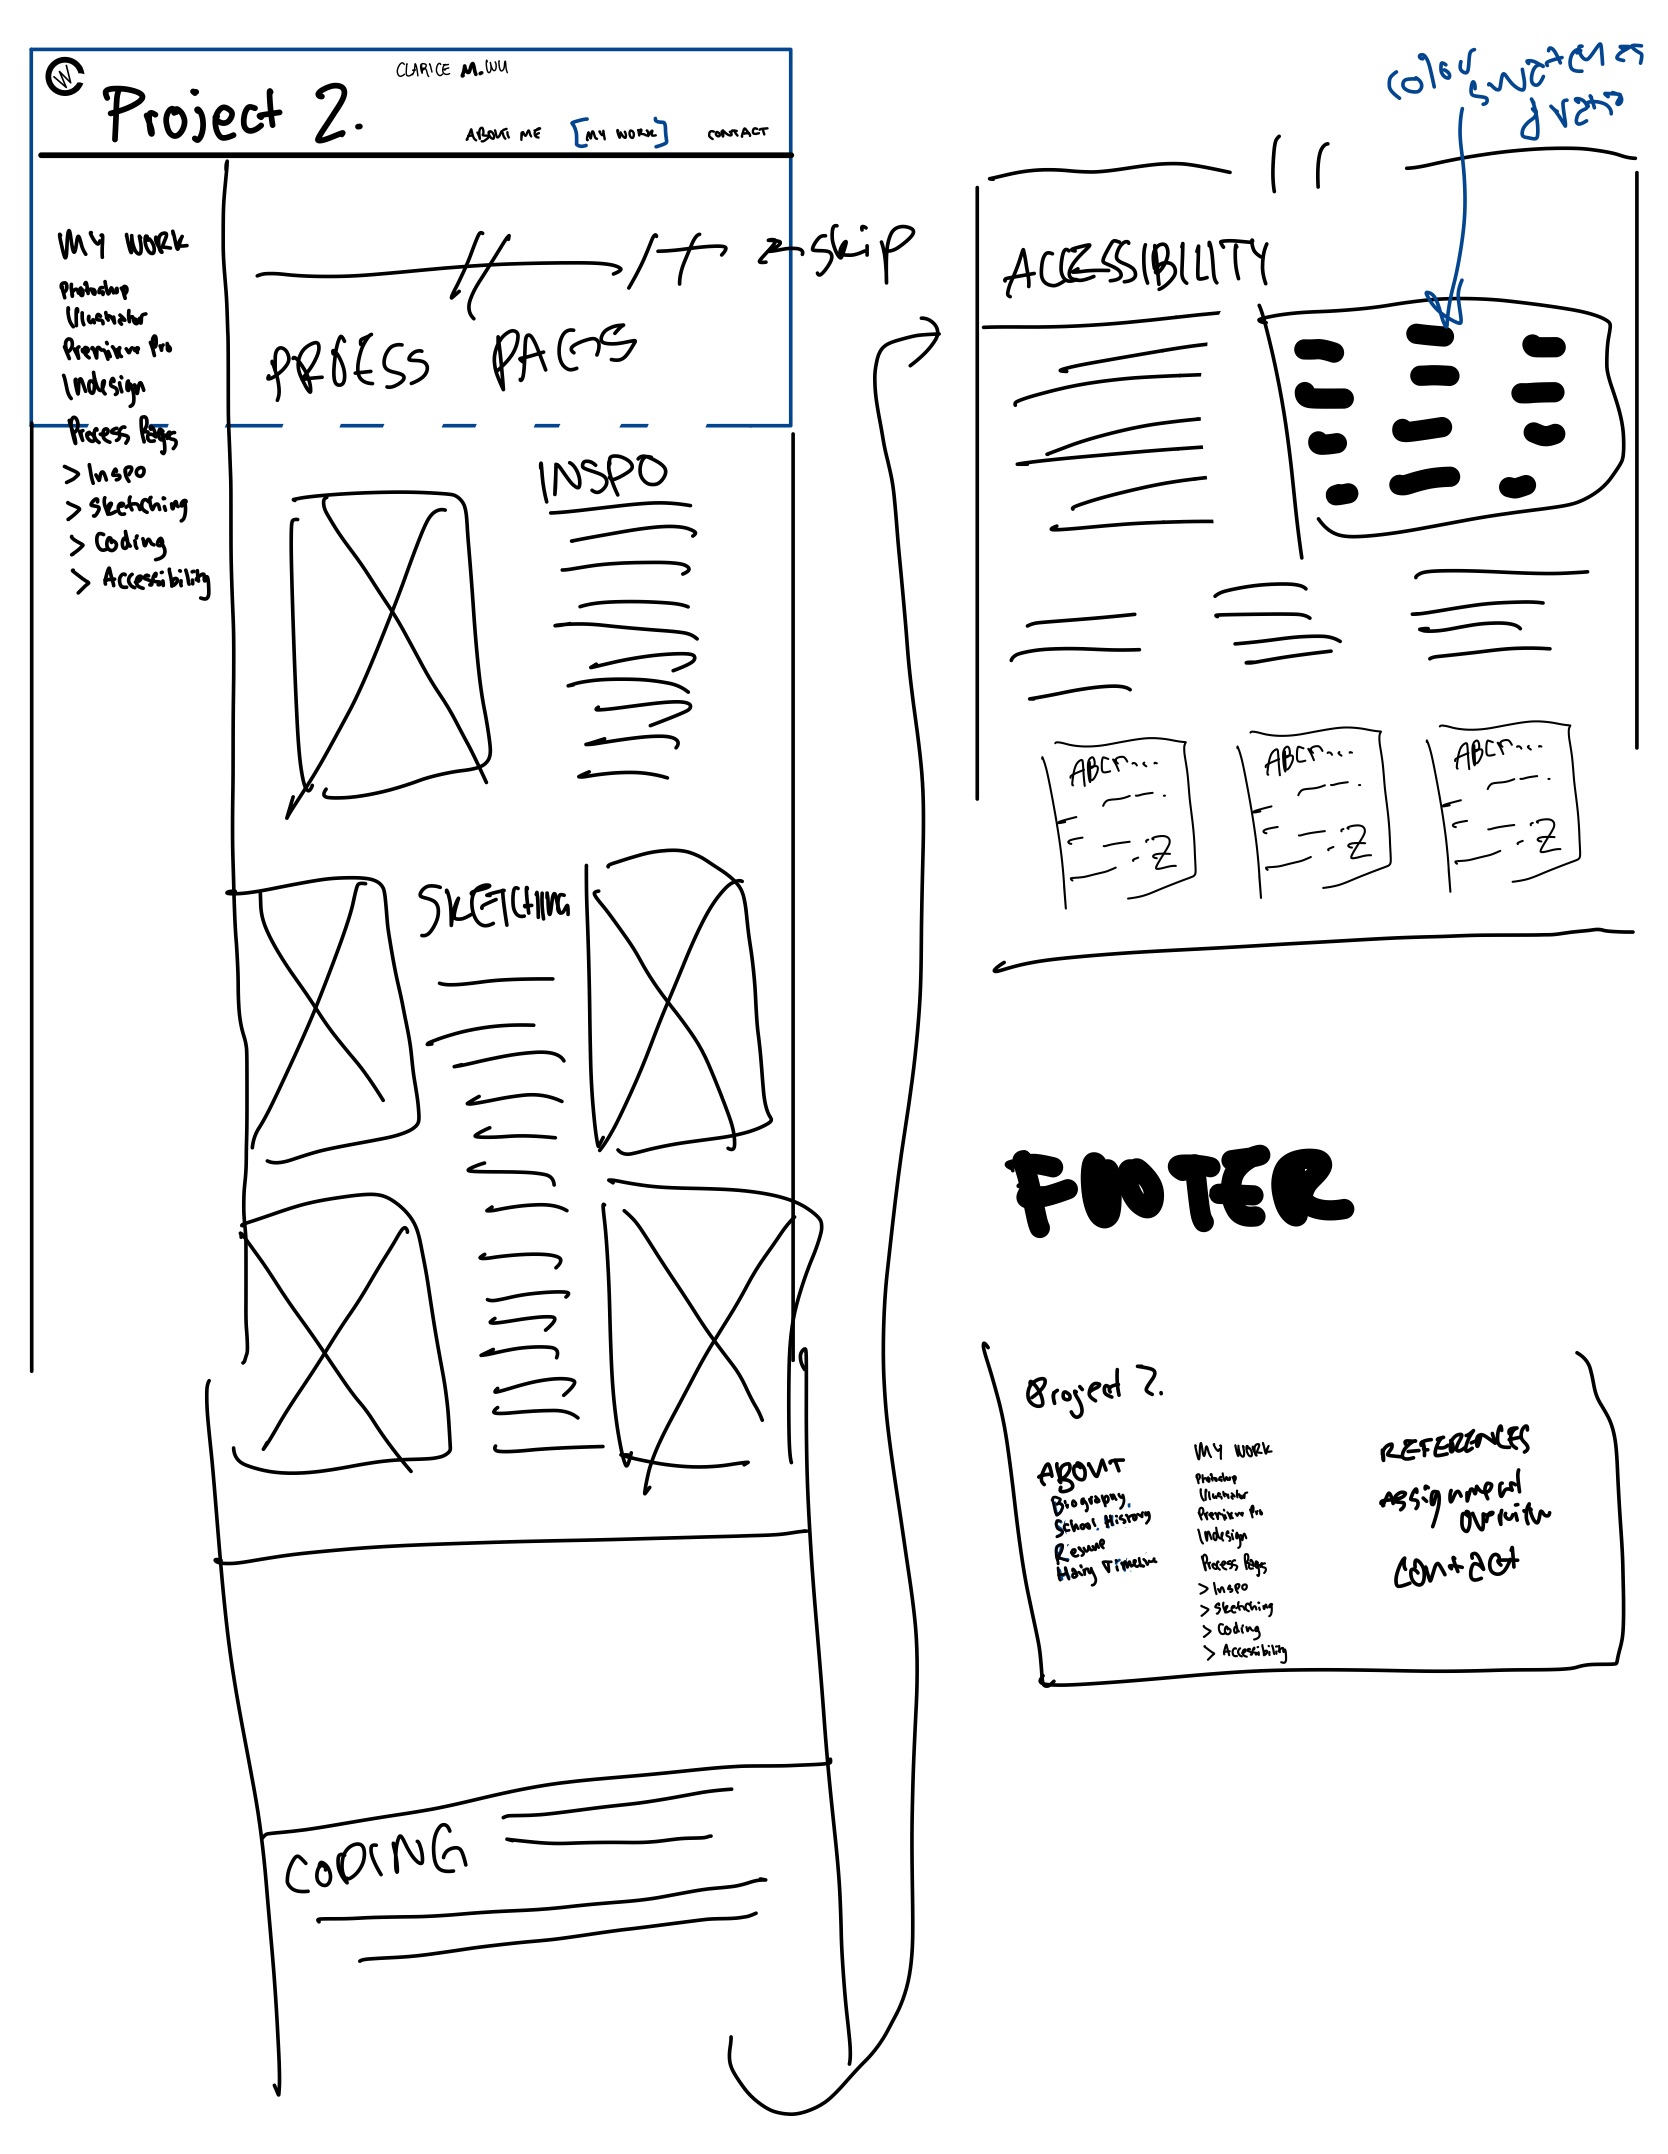 CW
CLARICE M. WU
Project 2.
ABOUT ME [MY WORK] CONTACT
MY WORK
Photoshop
Illustrator
Premiere Pro
Indesign
Process Pages
> Inspo
> Sketching
> Coding
> Accessibility
skip
PROCESS PAGES
INSPO
SKETCHING
CODING
color swatches
ACCESSIBILITY
ABCF... Z
ABCF... Z
ABCF... Z
FOOTER
Project 2.
ABOUT
Biography.
School History
Resume
MY WORK
Photoshop
Illustrator
Premiere Pro
Indesign
Process Pages
> Inspo
> Sketching
> Coding
> Accessibility
REFERENCES
Assignment
overview
Contact